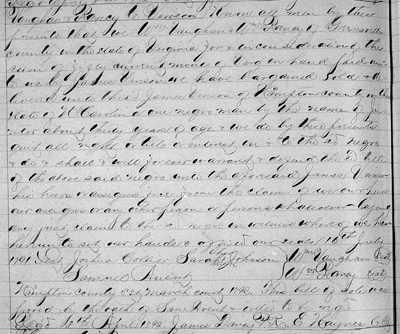 Vaughan & Rancy to Vinson Know all men by these
presents that we Wm Vaughan & Wm Rancy of Greensville
county in the state of Virginia for & in consideration of the
sum of fifty current money of Virg in hand paid
to us by James Vinson we have bargained sold & de
livered unto the sd James Vinson of N Hampton county in the
State of N Carolina one negro man by the name of
about thirty years of age & we do by these presents
our all right or title or interest in & to the sd negro
& do & shall & will forever warrant & defend the sd title
of the above said negro unto the aforesaid James Vinson
his heirs or assigns free from the claim of us our heirs
our assigns or any other person or persons whatsoever laying
any just claim to the sd negro in witness whereof we have
hereunto set our hands & affixed our seals 16th July
1791 Test Joshua Sarah Johnson Wm Vaughan seal
Samuel Wm Rancy seal
N Hampton county Ect March court 1792 This bill of sale was
proved by the oath of & ordered to be
10th April 1792 James P R E Haynes C Ct